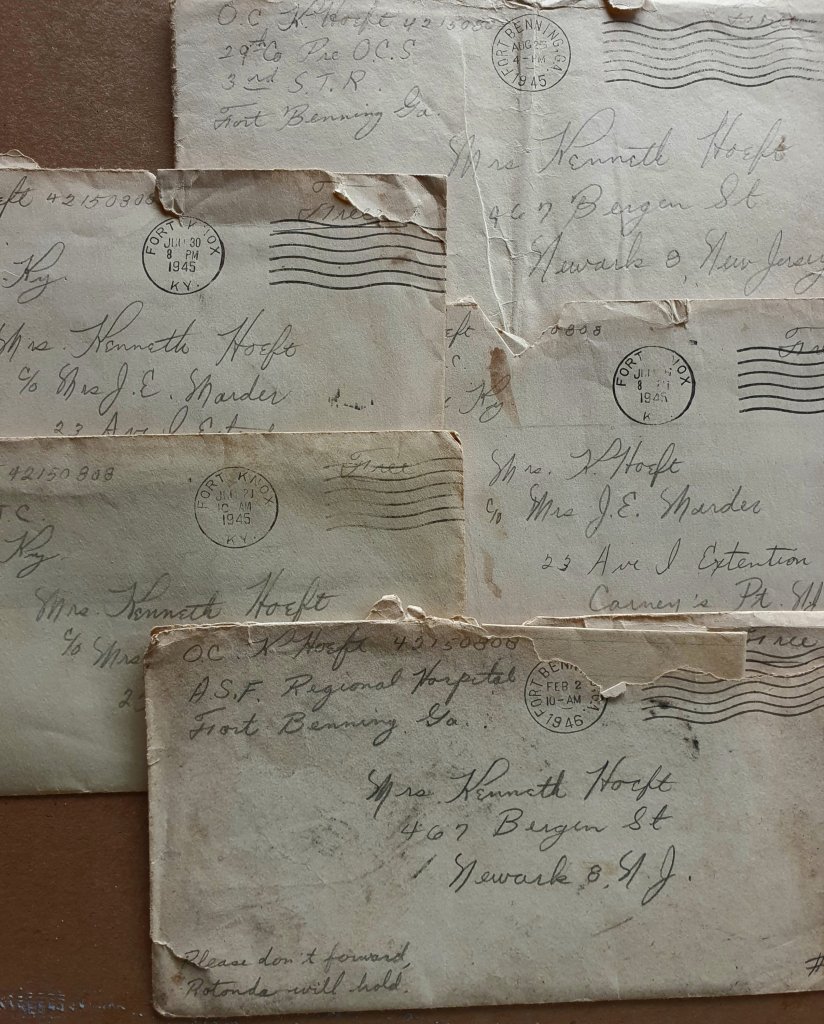 O.C. K. Hoeft 42150808
29th Co Pre O.C.S
3rd S.T.R.
Fort Benning Ga.
FORT BENNING, GA.
AUG 25
4-PM
1945
Mrs Kenneth Hoeft
467 Bergen St
Newark 8, New Jersey
eft 42150808
Ky.
FORT KNOX
30
8 PM
1945
KY.
Free
Mrs. Kenneth Hoeft
c/o Mrs J.E. Marder
23 Ave I
eft 0808
C.
Ky
FORT KNOX
8
1945
K
Mrs. K. Hoeft
c/o Mrs J.E. Marder
23 Ave I Extention
Carney's Pt
42150808
TC.
Ky
FORT KNOX
10 AM
1945
KY.
Free
Mrs. Kenneth Hoeft
c/o Mrs
2
O.C. K. Hoeft 42150808
A.S.F. Regional Hospital
Fort Benning Ga.
FORT BENN GA
FEB 2
10-AM
1946
Free
Mrs. Kenneth Hoeft
467 Bergen St
Newark 8, N.J.
Please don't forward,
Rotonda will hold.
#